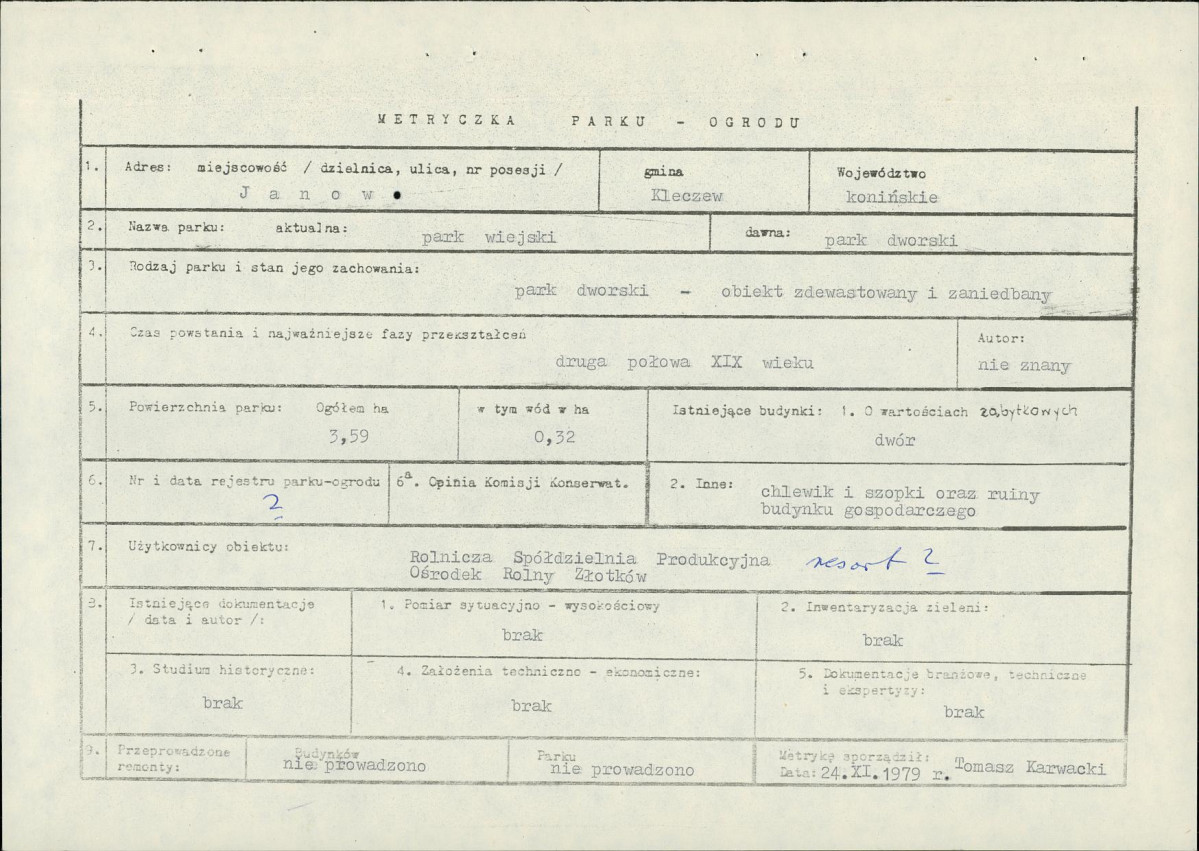 METRYCZKA PARKU - OGRODU
1. Adres: miejscowość / dzielnica, ulica, nr posesji /
Janow
gmina
Kleczew
Województwo
konińskie
2. Nazwa parku: aktualna: park wiejski
dawna: park dworski
3. Rodzaj parku i stan jego zachowania:
park dworski - obiekt zdewastowany i zaniedbany
4. Czas powstania i najważniejsze fazy przekształceń
druga połowa XIX wieku
Autor:
nie znany
5. Powierzchnia parku: Ogółem ha
3,59
w tym wód w ha
0,32
Istniejące budynki: 1. O wartościach zabytkowych
dwór
6. Nr i data rejestru parku-ogrodu
?
6a. Opinia Komisji Konserwat.
2. Inne: chlewik i szopki oraz ruiny
budynku gospodarczego
7. Użytkownicy obiektu:
Rolnicza Spółdzielnia Produkcyjna resort ?
Ośrodek Rolny Złotków
8. Istniejące dokumentacje
/ data i autor /:
1. Pomiar sytuacyjno - wysokościowy
brak
2. Inwentaryzacja zieleni:
brak
3. Studium historyczne:
brak
4. Założenia techniczno - ekonomiczne:
brak
5. Dokumentacje branżowe, techniczne
i ekspertyzy:
brak
9. Przeprowadzone
remonty:
Budynków
nie prowadzono
Parku
nie prowadzono
Metrykę sporządził: Tomasz Karwacki
Data: 24.XI.1979 r.